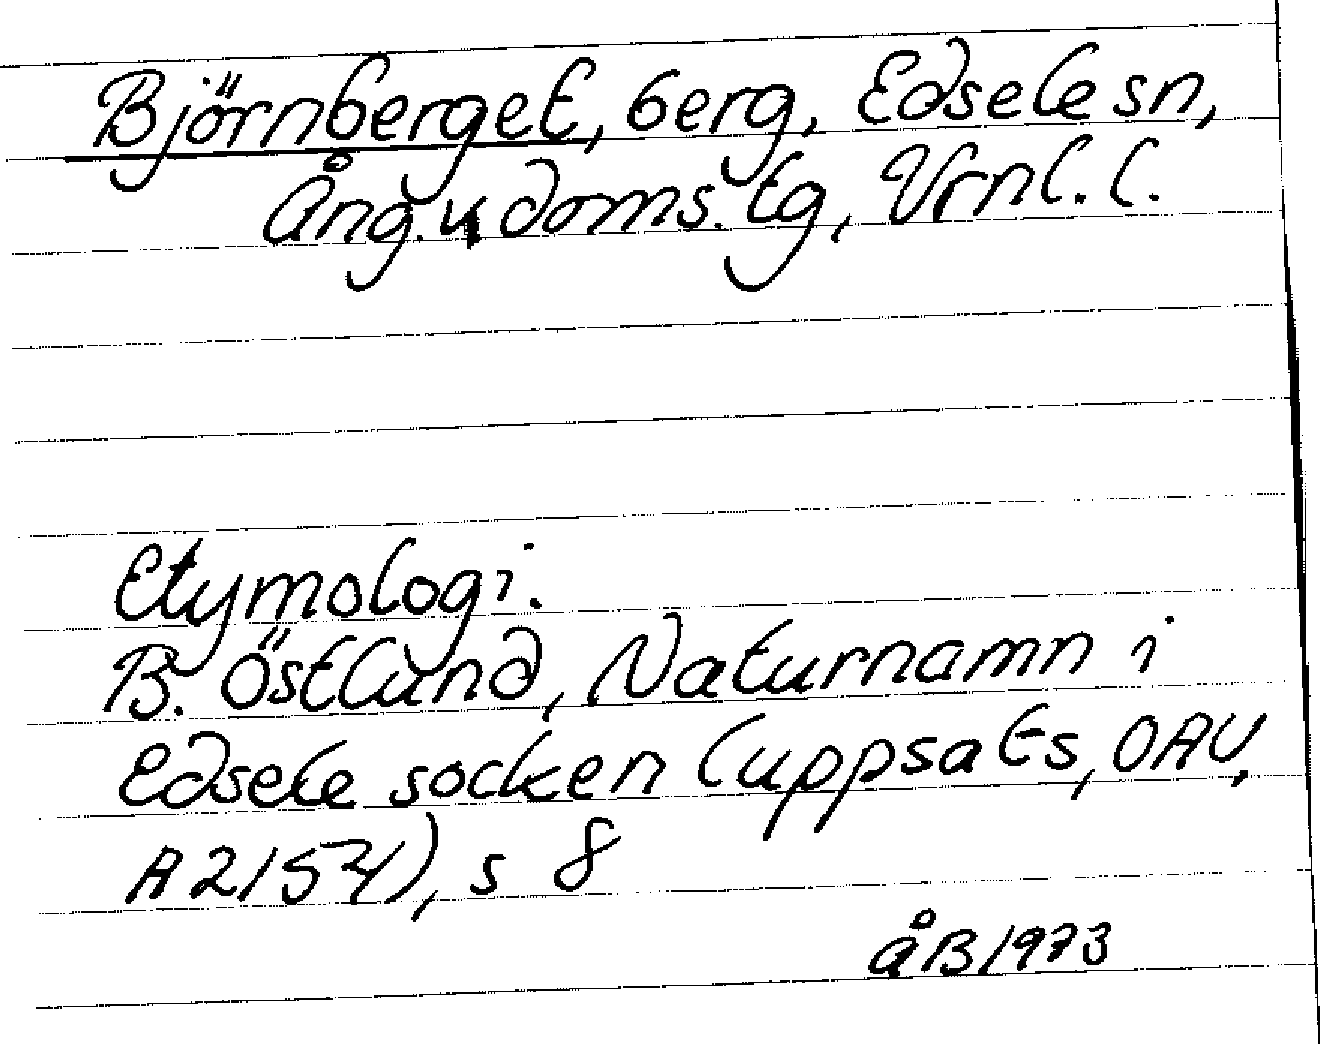 Björnberget, berg, Edsele sn,
Ång. v doms. tg, Vrnl. l.
Etymologi.
B. Östlund, Naturnamn i
Edsele socken (uppsats, OAU,
A 2154), s 8
åB 1973